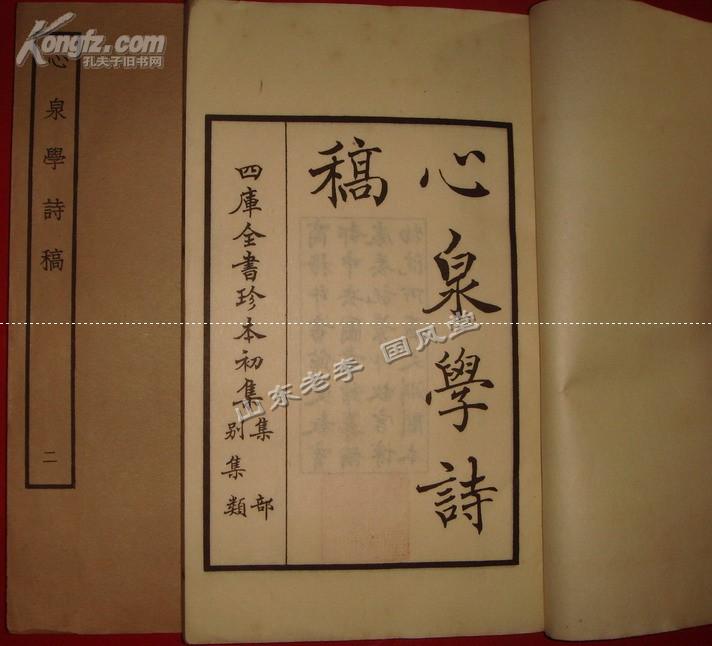 Kongfz.com
孔夫子旧书网
心泉學詩稿
二
心泉學詩
稿
四庫全書珍本初集
集部
别集類
山东老李 国风堂